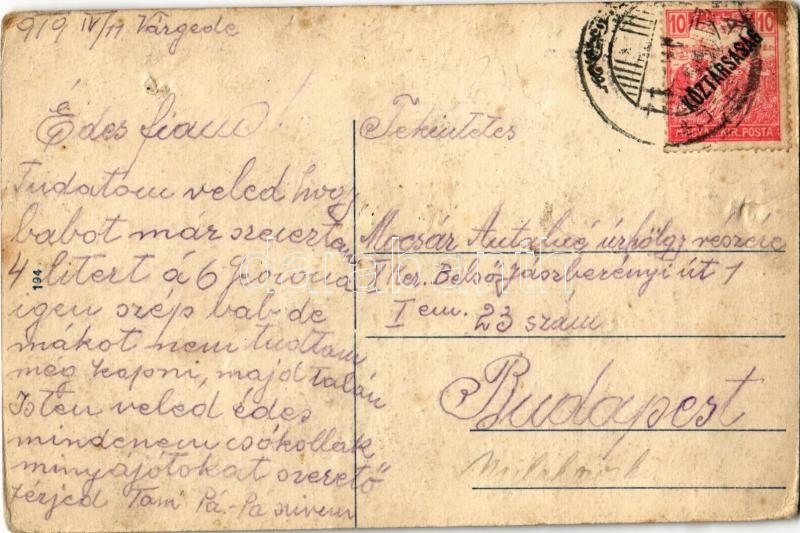 919 IV/11 Várgede
Édes fiam!
Tudatom veled hogy
babot már szereztem
4 litert á 6 korona
igen szép bab de
mákot nem tudtam
még kapni, majd talán
Isten veled édes
mindenem csókollak
minyájótokat szerető
férjed Tam Pá-Pa szivem
194
10 10
KÖZTÁRSASÁG
MAGYAR KIR. POSTA
Tekintetes
Macsár Antalné úrhölgy részére
Ker. Belső Jászberényi út 1
I em. 23 szám
Budapest
darabanth